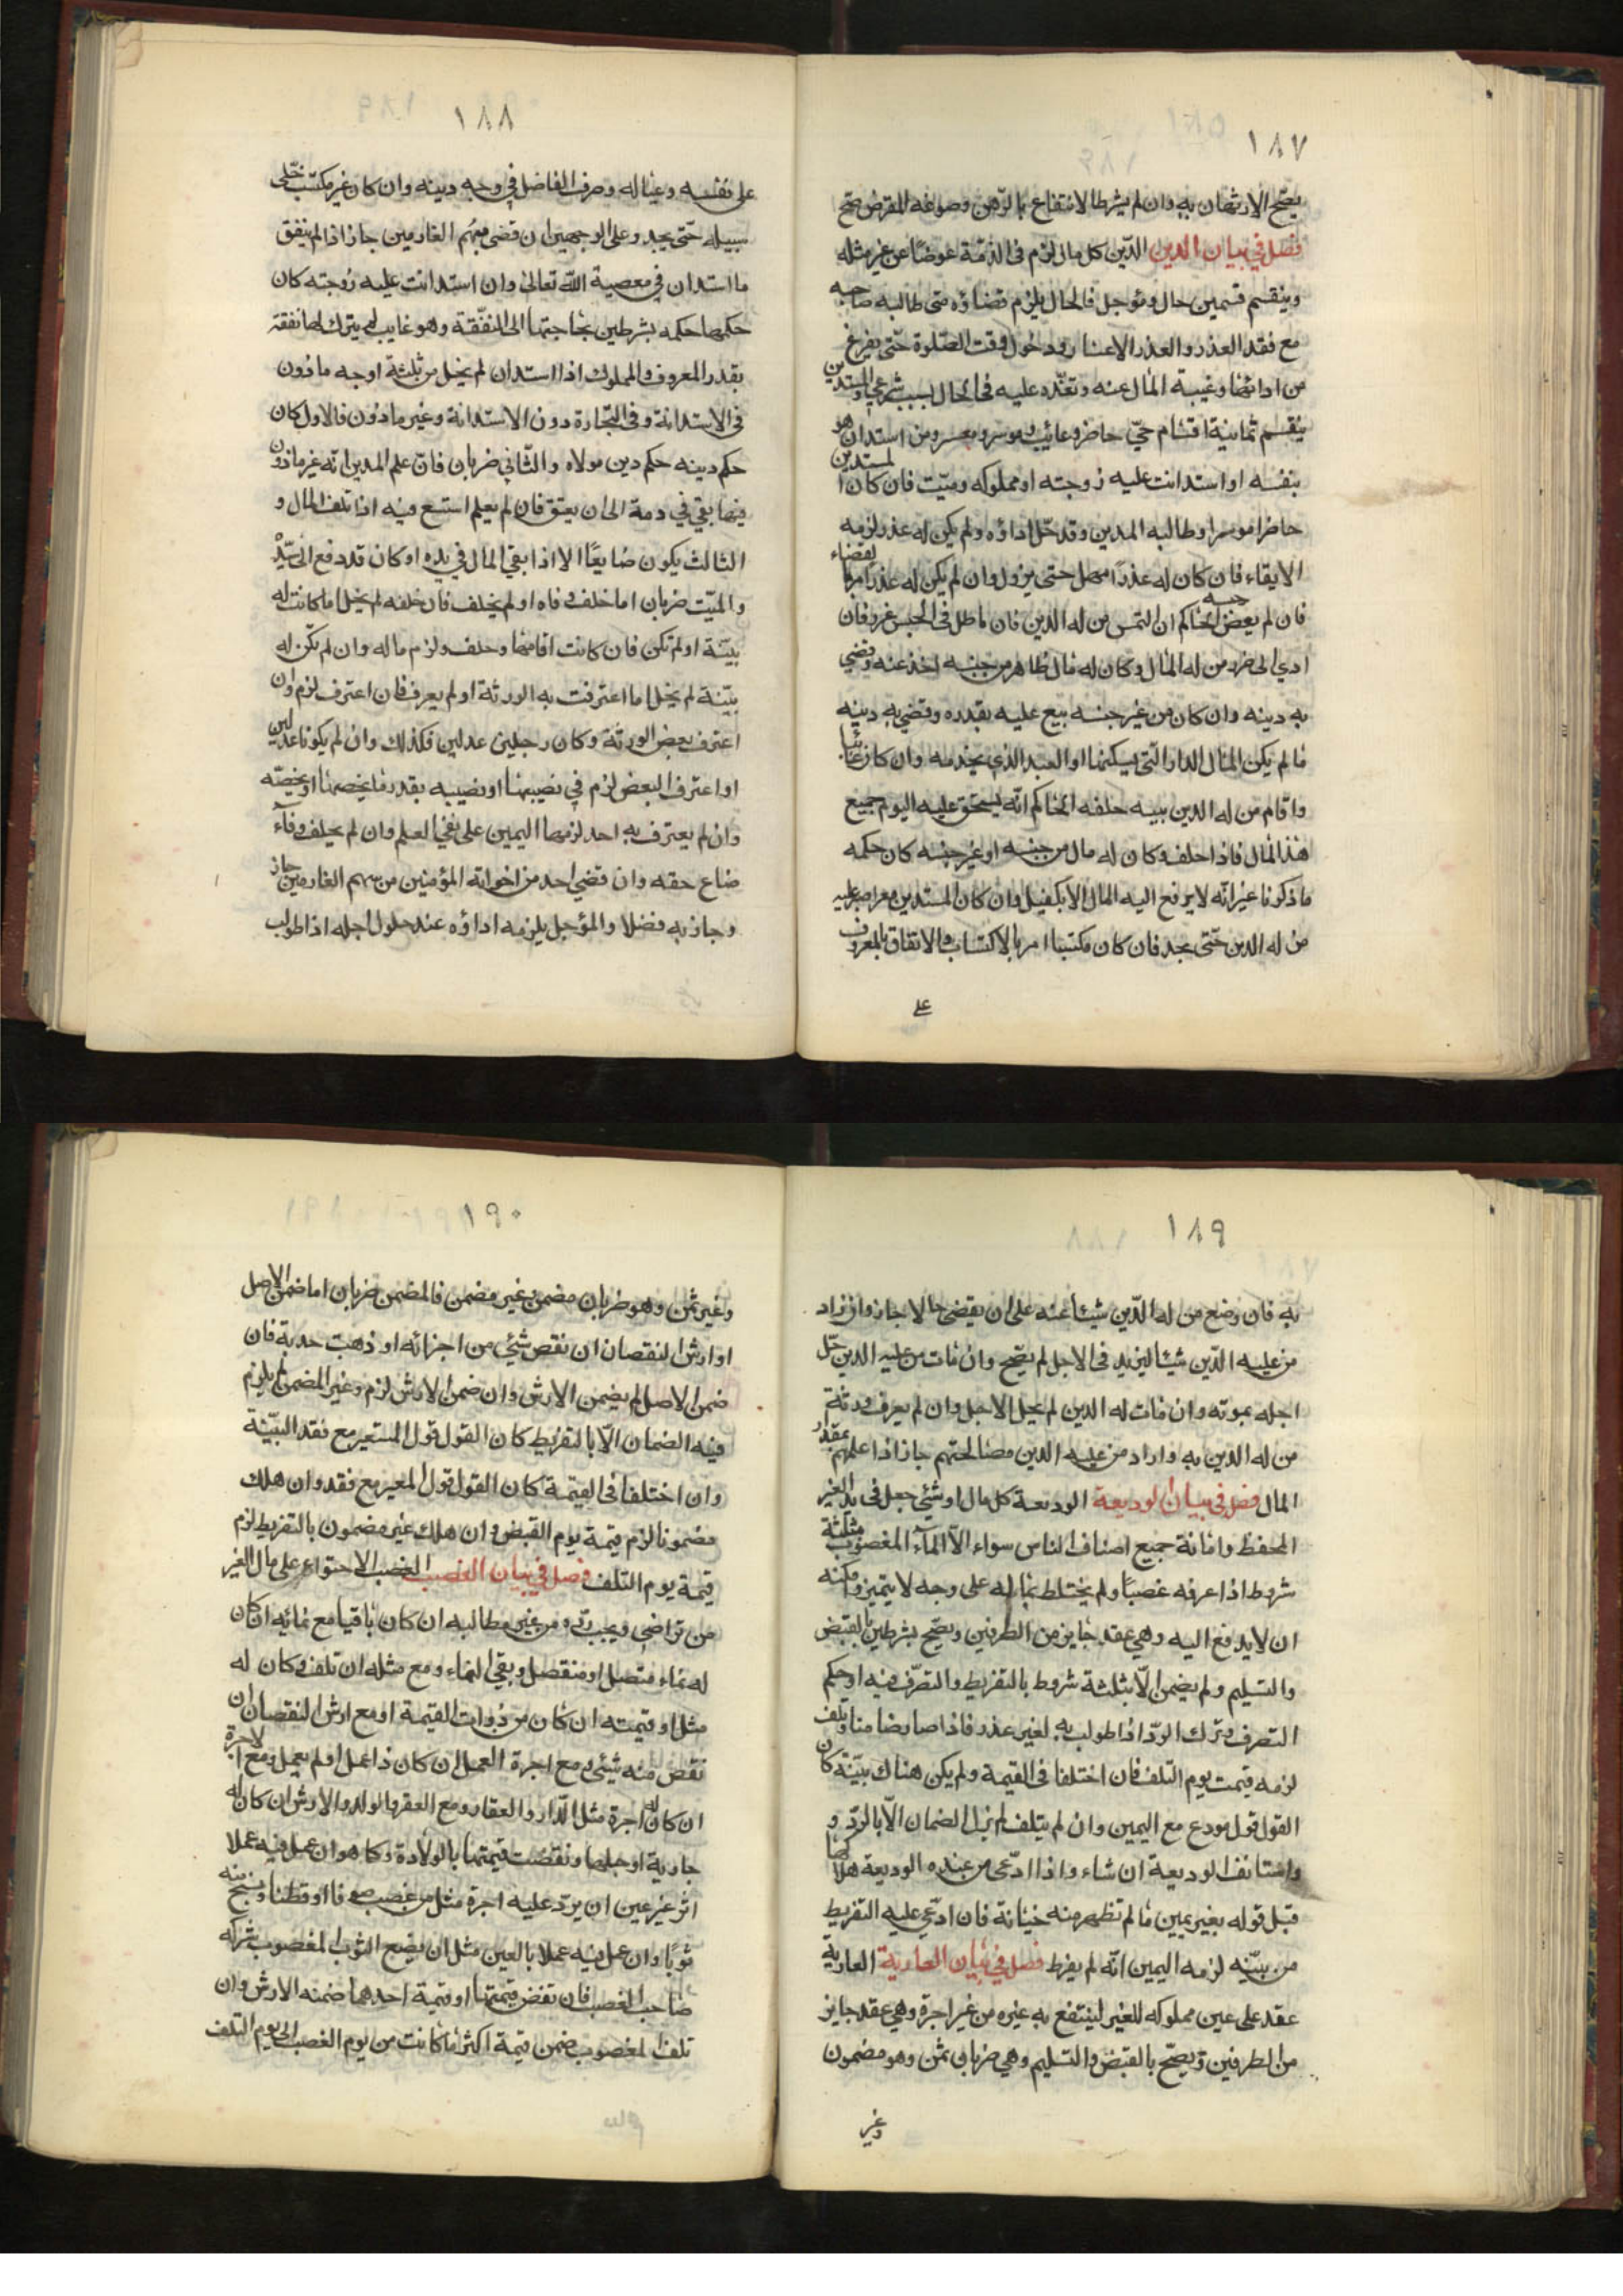 ١٨٧
يصح الارتهان به وان لم يشرط الانتفاع بالرهن وصوغه المقرض صح
فصل في بيان الدين الدّين كل مال لزم فى الذمّة عوضًا عن غير مثله
وينقسم قسمين حال ومؤجل فالحال يلزم قضاؤه متى طالبه صاحبه
مع فقد العذر والعذر الاعسار ودخول وقت الصّلوة حتّى يفرغ
من ادائها وغيبة المال عنه وتعذّره عليه فى الحال بسبب شرعي والمستدين
ينقسم ثمانية اقسام حيّ حاضر وغائب وموسر ومعسر ومن استدان هو
بنفسه او استدانت عليه زوجته او مملوكه وميّت فان كان المستدين
حاضرا موسرا وطالبه المدين وقد حّل اداؤه ولم يكن له عذر لزمه
الايفاء فان كان له عذرًا مهل حتى يزول وان لم يكن له عذر امر بالقضاء
فان لم يعض حبسه الحاكم ان التمس من له الدين فان ماطل فى الحبس عزر فان
ادي الى ضرر من له المال وكان له مال ظاهر من جنسه اخذ عنه وقضي
به دينه وان كان من غير جنسه بيع عليه بقدره وقضي به دينه
ما لم يكن المال الدار التى يسكنها او العبد الذي يخدمه وان كان غائبا
واقام من له الدين بينه حلفه الحاكم انّه يستحق عليه اليوم جميع
هذا المال فاذا حلف وكان له مال من جنسه او غير جنسه كان حكمه
ما ذكرنا غير انّه لا يدفع اليه المال الا بكفيل وان كان المستدين معسرا صبر عليه
من له الدين حتّى يجد فان كان مكتسبا امر بالاكتساب والانفاق بالمعروف
على
١٨٨
على نفسه وعياله وصرف الفاضل في وجه دينه وان كان غير مكتسب خلّى
سبيله حتّى يجد وعلى الوجهين ان قضى من سهم الغارمين جاز اذا لم ينفق
ما استدان في معصية اللّه تعالى وان استدانت عليه زوجته كان
حكمها حكمه بشرطين بحاجتها الى النفّقة وهو غايب لم يترك لها نفقة
بقدر المعروف والمملوك اذا استدان لم يخل من ثلثة اوجه ماذون
فى الاستدانة وفى التّجارة دون الاستدانة وغير ماذون فالاول كان
حكم دينه حكم دين مولاه والثّاني ضربان فان علم المدين انّه غير ماذون
فيها بقي في ذمة الى ان يعتق فان لم يعلم استسع فيه اذا تلف المال و
الثالث يكون ضايعًا الا اذا بقي المال في يده او كان قد دفع الى سيّده
والميّت ضربان اما خلف وفاه او لم يخلف فان خلفه لم يخل اما كانت له
بيّنة او لم تكن فان كانت اقامها وحلف ولزم ماله وان لم تكن له
بيّنة لم يخل اما اعترفت به الورثة او لم يعرف فان اعترف لزم وان
اعترف بعض الورثة وكان رجلين عدلين فكذلك وان لم يكونا عدلين
او اعترف البعض لزم في نصيبهما او نصيبه بقدر ما يخصهما او يخصّه
وان لم يعترف به احد لزمها اليمين على نفي العلم وان لم يحلف وفآء
ضاع حقه وان قضي احد من اخوانه المؤمنين من سهم الغارمين جاز
وجاز به فضلا والمؤجل يلزمه اداؤه عند حلول اجله اذا طولب
١٨٩
به فان وضع من له الدّين شيئا عنه على ان يقضى حالا جاز وان زاد
من عليه الدّين شيئا ليزيد فى الاجل لم يصّح وان مات من عليه الدين حّل
اجله بموته وان مات له الدين لم يحل الاجل وان لم يعرف ورثة
من له الدين به واراد من عليه الدين مصالحتهم جاز اذا اعلمهم بمقدار
المال فصل في بيان الوديعة الوديعة كل مال او شئي جعل فى يد الغير
للحفظ وامانة جميع اصناف الناس سواء الّا المآء المغصوب بثلثة
شروط اذا عرفه غصبًا ولم يختلط بماله على وجه لا يتميز وامكنه
ان لا يدفع اليه وهي عقد جايز من الطرفين ويصّح بشرطين بالقبض
والتسليم ولم يضمن الّا بثلثة شروط بالتفريط والتصرّف فيه او حكم
التصرف وترك الردّ اذا طولب به لغير عذر فاذا صار ضامنا وتلف
لزمه قيمت يوم التلف فان اختلفا فى القيمة ولم يكن هناك بيّنة كان
القول قول مودع مع اليمين وان لم يتلف لم يزل الضمان الّا بالردّ و
واستانف الوديعة ان شاء واذا ادّعى من عنده الوديعة هلاكها
قبل قوله بغير يمين ما لم تظهر منه خيانة فان ادّعي عليه التفريط
من بيّنه لزمه اليمين انّه لم يفرط فصل في بيان العارية العارية
عقد على عين مملوكه للغير لينتفع به غيره من غير اجرة وهي عقد جايز
من الطرفين ويصّح بالقبض والتسليم وهي ضربان ثمن وهو مضمون
وغير
١٩٠
وغير ثمن وهو ضربان مضمن وغير مضمن فالمضمن ضربان اما ضمن الاصل
او ارش النقصان ان نقص شئي من اجزائه او ذهبت جدبة فان
ضمن الاصل لم يضمن الارش وان ضمن الارش لزم وغير المضمن لم يلزم
فيه الضمان الّا بالتفريط كان القول قول المستعير مع فقد البيّنة
وان اختلفا فى القيمة كان القول قول المعير مع فقد وان هلك
مضمونا لزم قيمة يوم القبض وان هلك غير مضمون بالتفريط لزم
قيمة يوم التلف فصل في بيان الغصب الغصب الاحتواء على مال الغير
من تراضي ويجب ردّه من غير مطالبه ان كان باقيا مع نمائه ان كان
له نماء متصل او منفصل وبقي النماء ومع مثله ان تلف وكان له
مثل او قيمته ان كان من ذوات القيمة او مع ارش النقصان ان
نقص منه شيئي ومع اجرة العمل ان كان ذا عمل او لم يعمل ومع الاجرة
ان كان له اجرة مثل الدّار والعقار ومع العقر والولد والارش ان كان له
جارية او حبلها ونقصت قيمتها بالولادة وكا هو ان عمل فيه عملا
اثر غير عين ان يردّ عليه اجرة مثل من غصب صوفا او قطنا ونسج منه
ثوبًا وان عمل فيه عملا بالعين مثل ان يصبغ الثوب المغصوب شركه
صاحب الغصب فان نقض قيمتها او قيمة احدهما ضمنه الارش وان
تلف المغصوب ضمن قيمة اكثر ما كانت من يوم الغصب الى يوم التلف